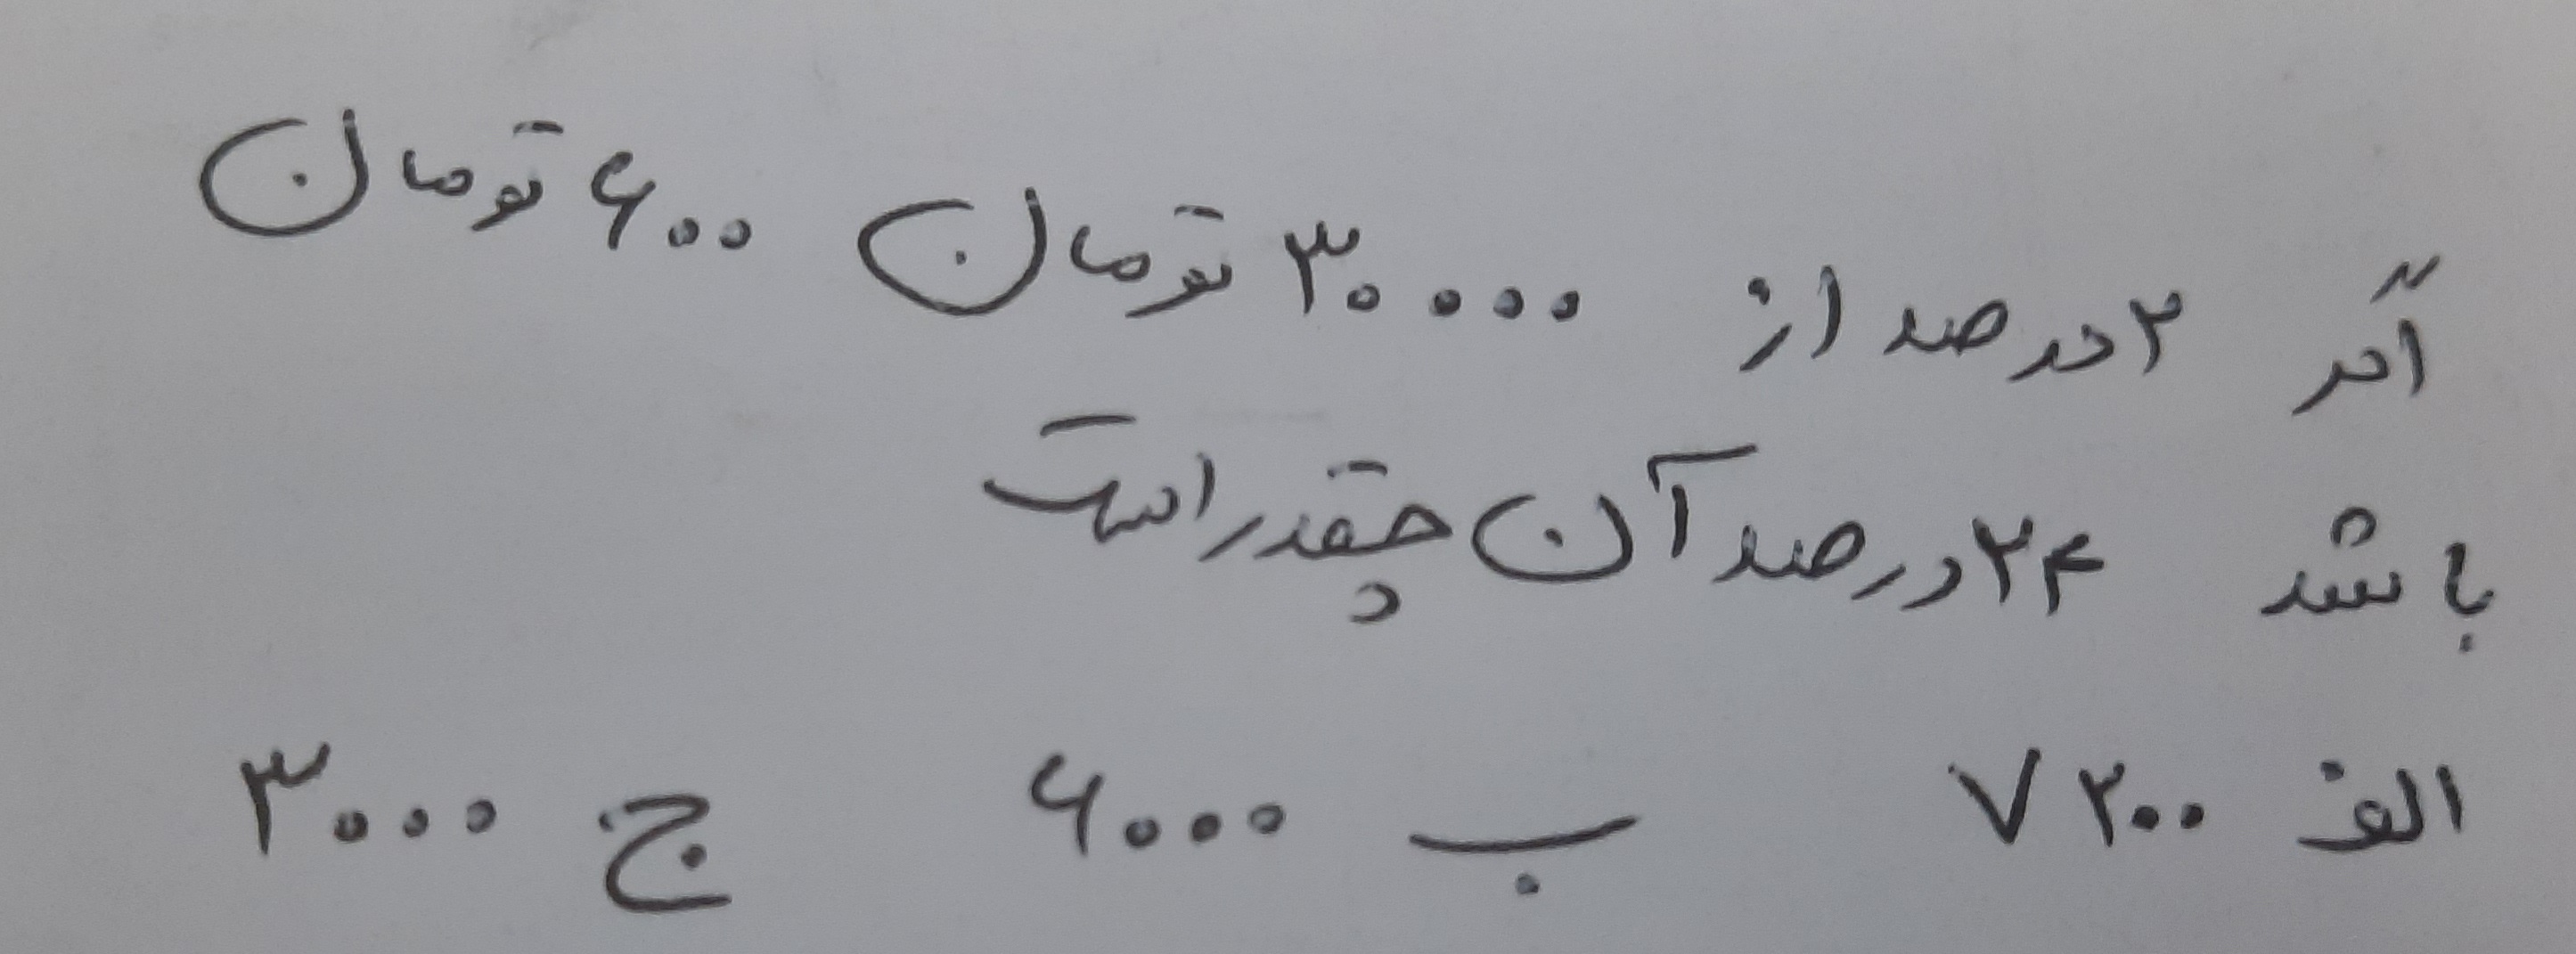 اگر ۲ درصد از ۳۰۰۰۰ تومان ۶۰۰ تومان
باشد ۲۴ درصد آن چقدر است
الف ۷۲۰۰ ب ۶۰۰۰ ج ۳۰۰۰